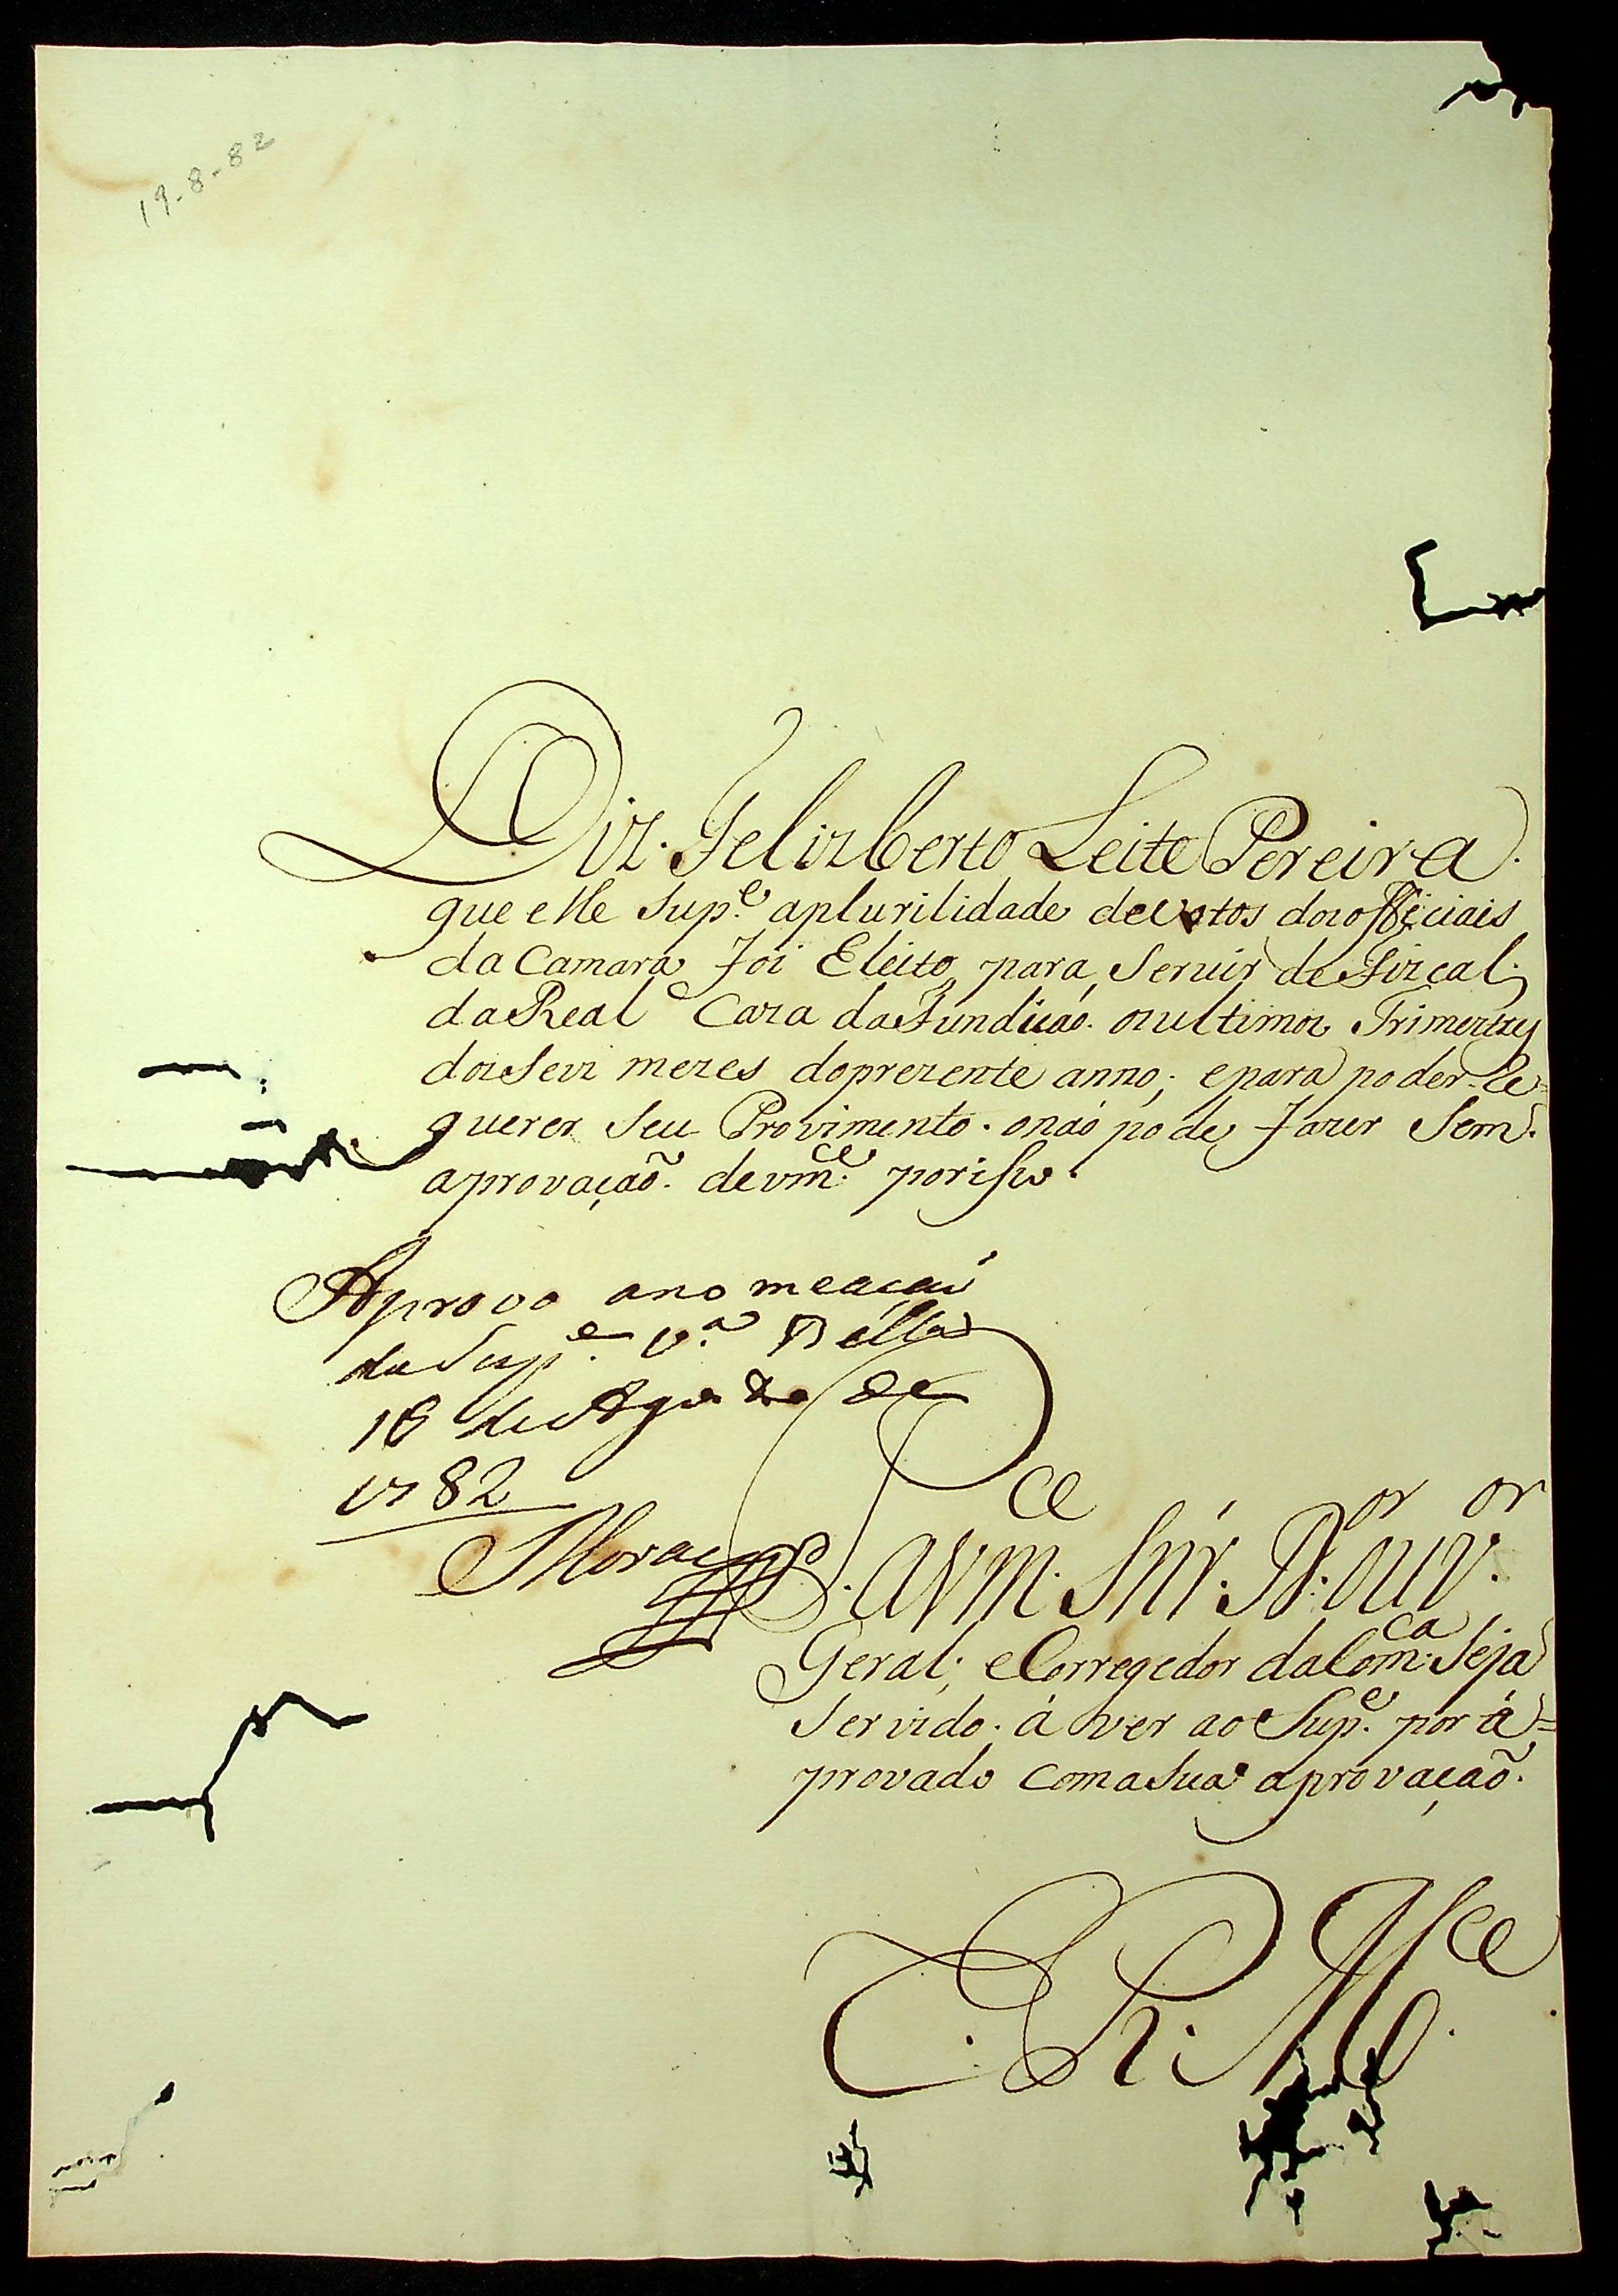 19-8-82
Diz Felizberto Leite Pereira.
que elle Sup.e aplurilidade devotos dos officiais
da Camara foi Eleito para Servir de Fizcal
da Real Caza da Fundicaó. os ultimos Trimeztres
dos Seis mezes doprezente anno; epara poder Re=
querer Seu Provimento. onaó pode fazer Sem
aprovaçaõ. devm.ce porisso.
Aprovo anomeaçaó
do Sup.e V.a Bella
16 de Agosto de
1782
Moraes
P. avm.ce Snr. D.or ouv.or
Geral; eCorregedor daCom.ca Seja
Servido. á ver ao Sup.e por á=
provado comasua aprovaçaõ.
E. R. M.ce